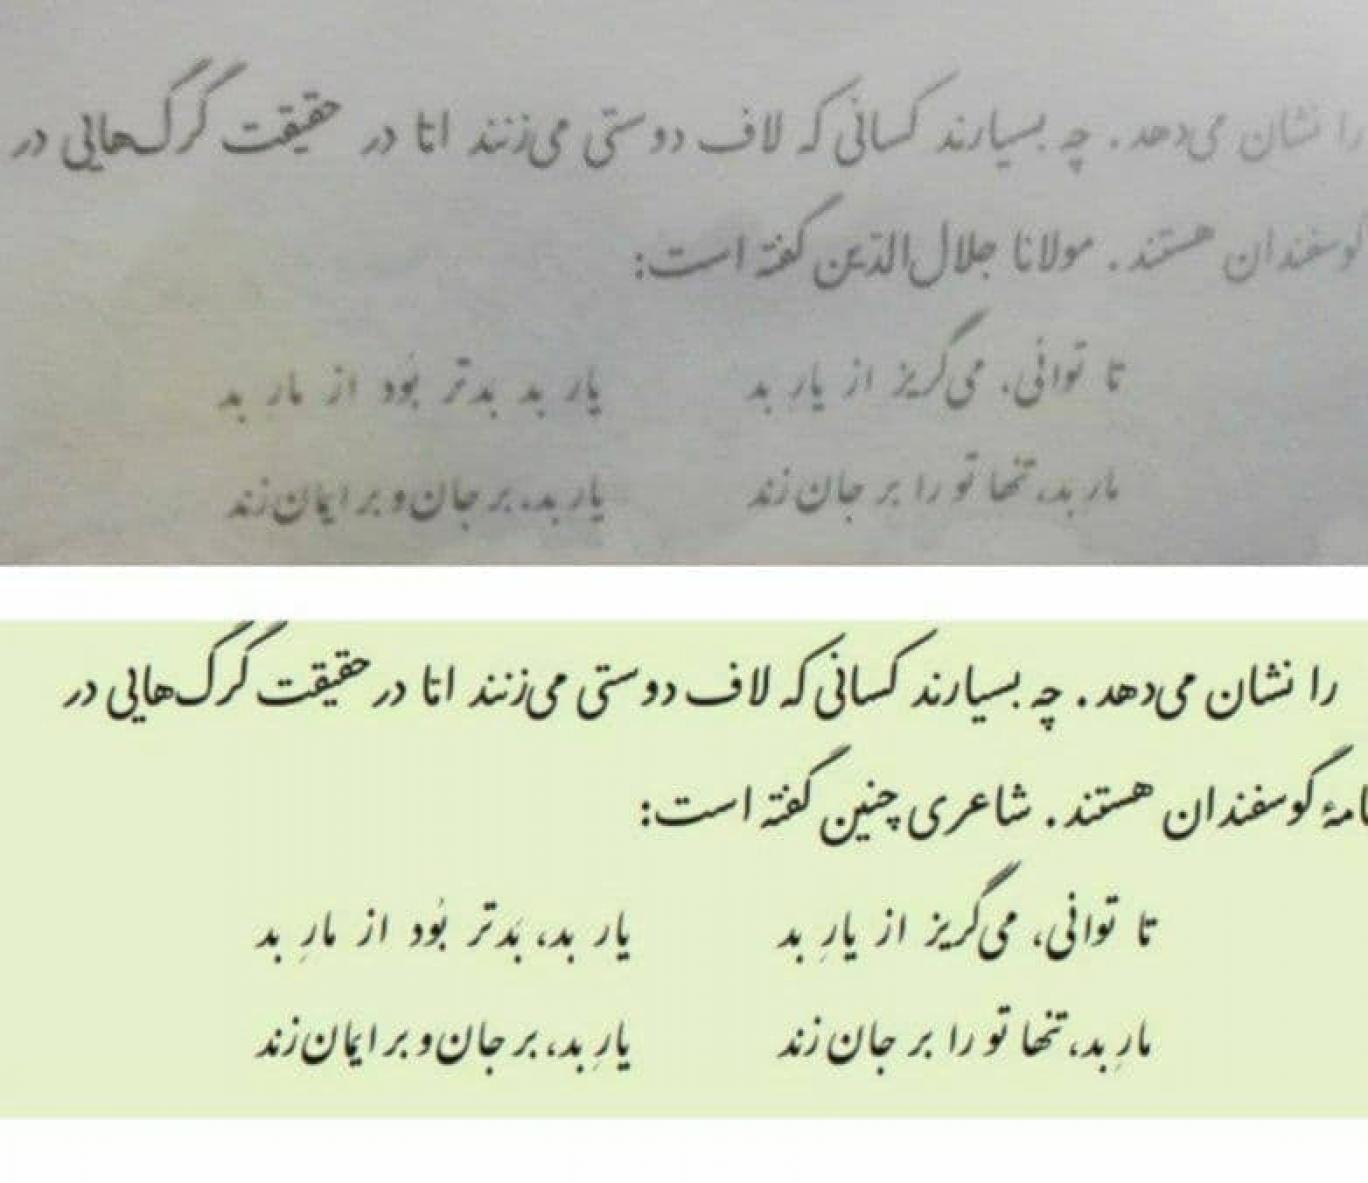 را نشان می‌دهد. چه بسیارند کسانی که لاف دوستی می‌زنند امّا در حقیقت گرگ‌هایی در
گوسفندان هستند. مولانا جلال‌الدّین گفته است:
تا توانی، می‌گریز از یارِ بد یار بد بدتر بُود از مار بد
مار بد، تنها تو را بر جان زند یار بد، بر جان و بر ایمان زند
را نشان می‌دهد. چه بسیارند کسانی که لاف دوستی می‌زنند امّا در حقیقت گرگ‌هایی در
امهٔ گوسفندان هستند. شاعری چنین گفته است:
تا توانی، می‌گریز از یارِ بد یار بد، بَدتر بُود از مارِ بد
مارِ بد، تنها تو را بر جان زند یارِ بد، بر جان و بر ایمان زند